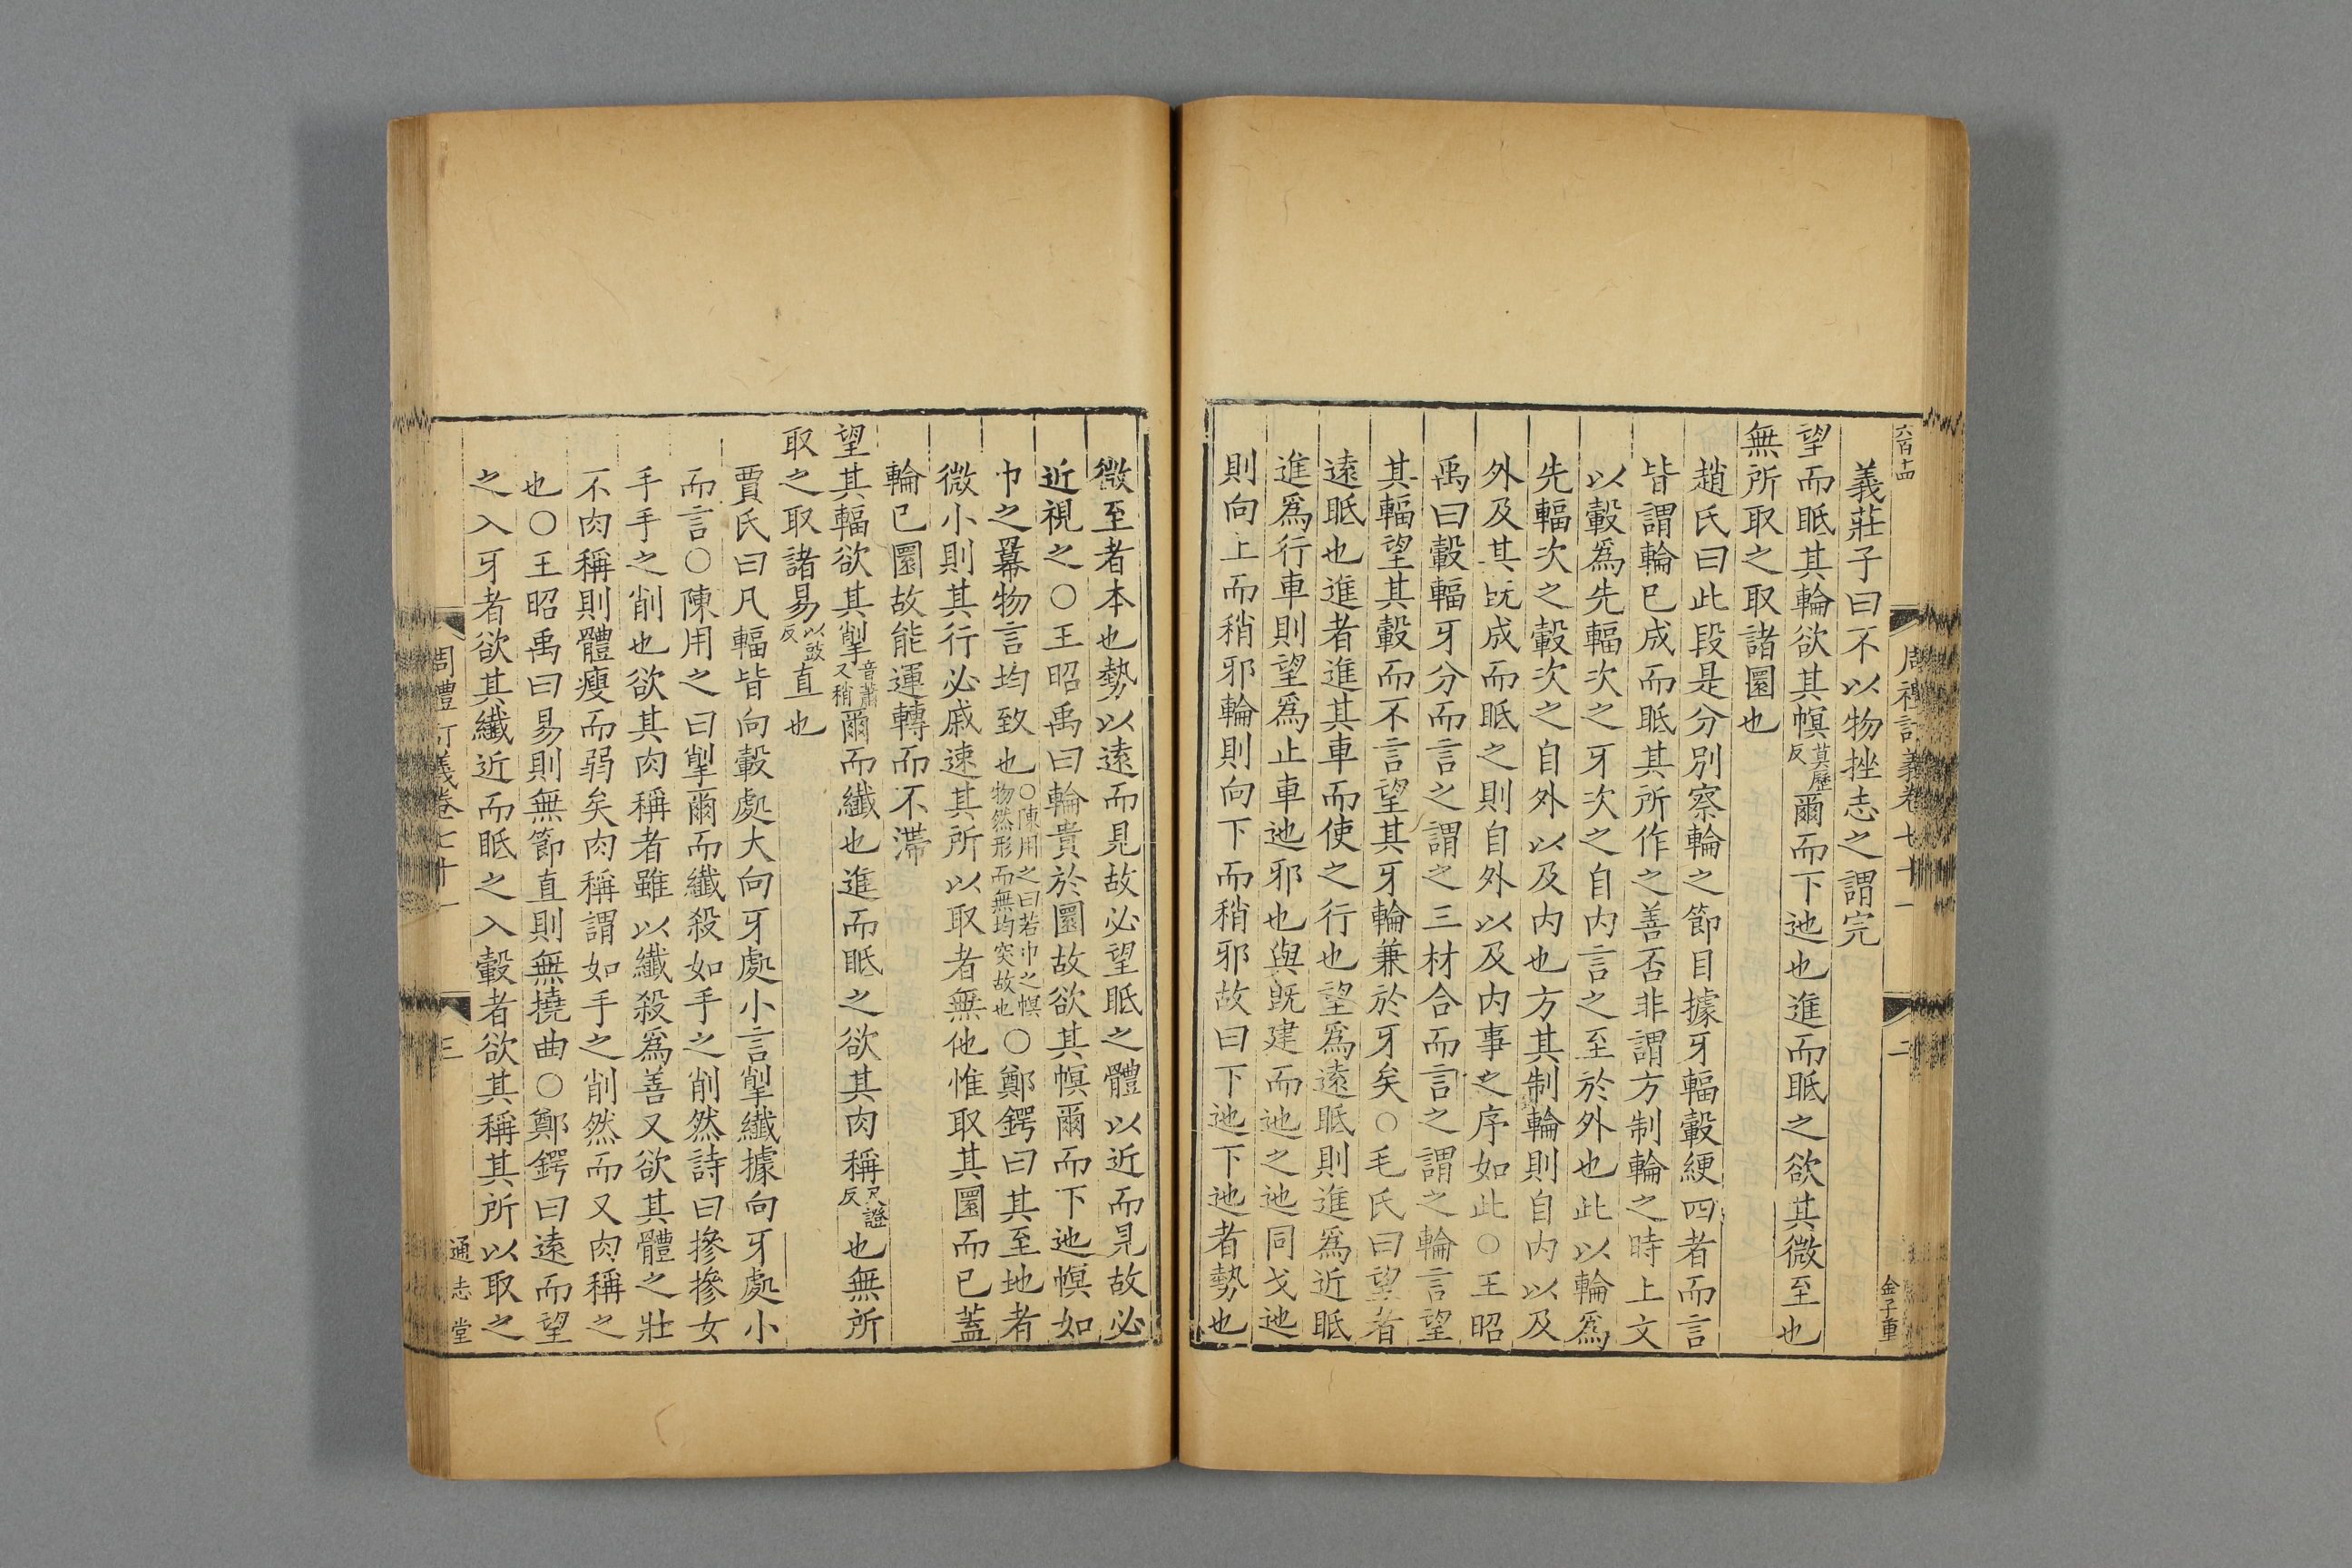 六百十四
周禮訂義卷七十一
二
金子重
義莊子曰不以物挫志之謂完
望而眡其輪欲其幎莫歷反爾而下迆也進而眡之欲其微至也
無所取之取諸圜也
趙氏曰此段是分別察輪之節目據牙輻轂綆四者而言
皆謂輪已成而眡其所作之善否非謂方制輪之時上文
以轂爲先輻次之牙次之自内言之至於外也此以輪爲
先輻次之轂次之自外以及内也方其制輪則自内以及
外及其既成而眡之則自外以及内事之序如此○王昭
禹曰轂輻牙分而言之謂之三材合而言之謂之輪言望
其輻望其轂而不言望其牙輪兼於牙矣○毛氏曰望者
遠眡也進者進其車而使之行也望爲遠眡則進爲近眡
進爲行車則望爲止車迆邪也與既建而迆之迆同戈迆
則向上而稍邪輪則向下而稍邪故曰下迆下迆者勢也
微至者本也勢以遠而見故必望眡之體以近而見故必
近視之○王昭禹曰輪貴於圜故欲其幎爾而下迆幎如
巾之冪物言均致也○陳用之曰若巾之幎物然形而無均突故也○鄭鍔曰其至地者
微小則其行必戚速其所以取者無他惟取其圜而已蓋
輪已圜故能運轉而不滯
望其輻欲其揱音蕭又稍爾而纖也進而眡之欲其肉稱尺證反也無所
取之取諸易以豉反直也
賈氏曰凡輻皆向轂處大向牙處小言揱纖據向牙處小
而言○陳用之曰揱爾而纖殺如手之削然詩曰摻摻女
手手之削也欲其肉稱者雖以纖殺爲善又欲其體之壯
不肉稱則體瘦而弱矣肉稱謂如手之削然而又肉稱之
也○王昭禹曰易則無節直則無撓曲○鄭鍔曰遠而望
之入牙者欲其纖近而眡之入轂者欲其稱其所以取之
周禮訂義卷七十一
三
通志堂